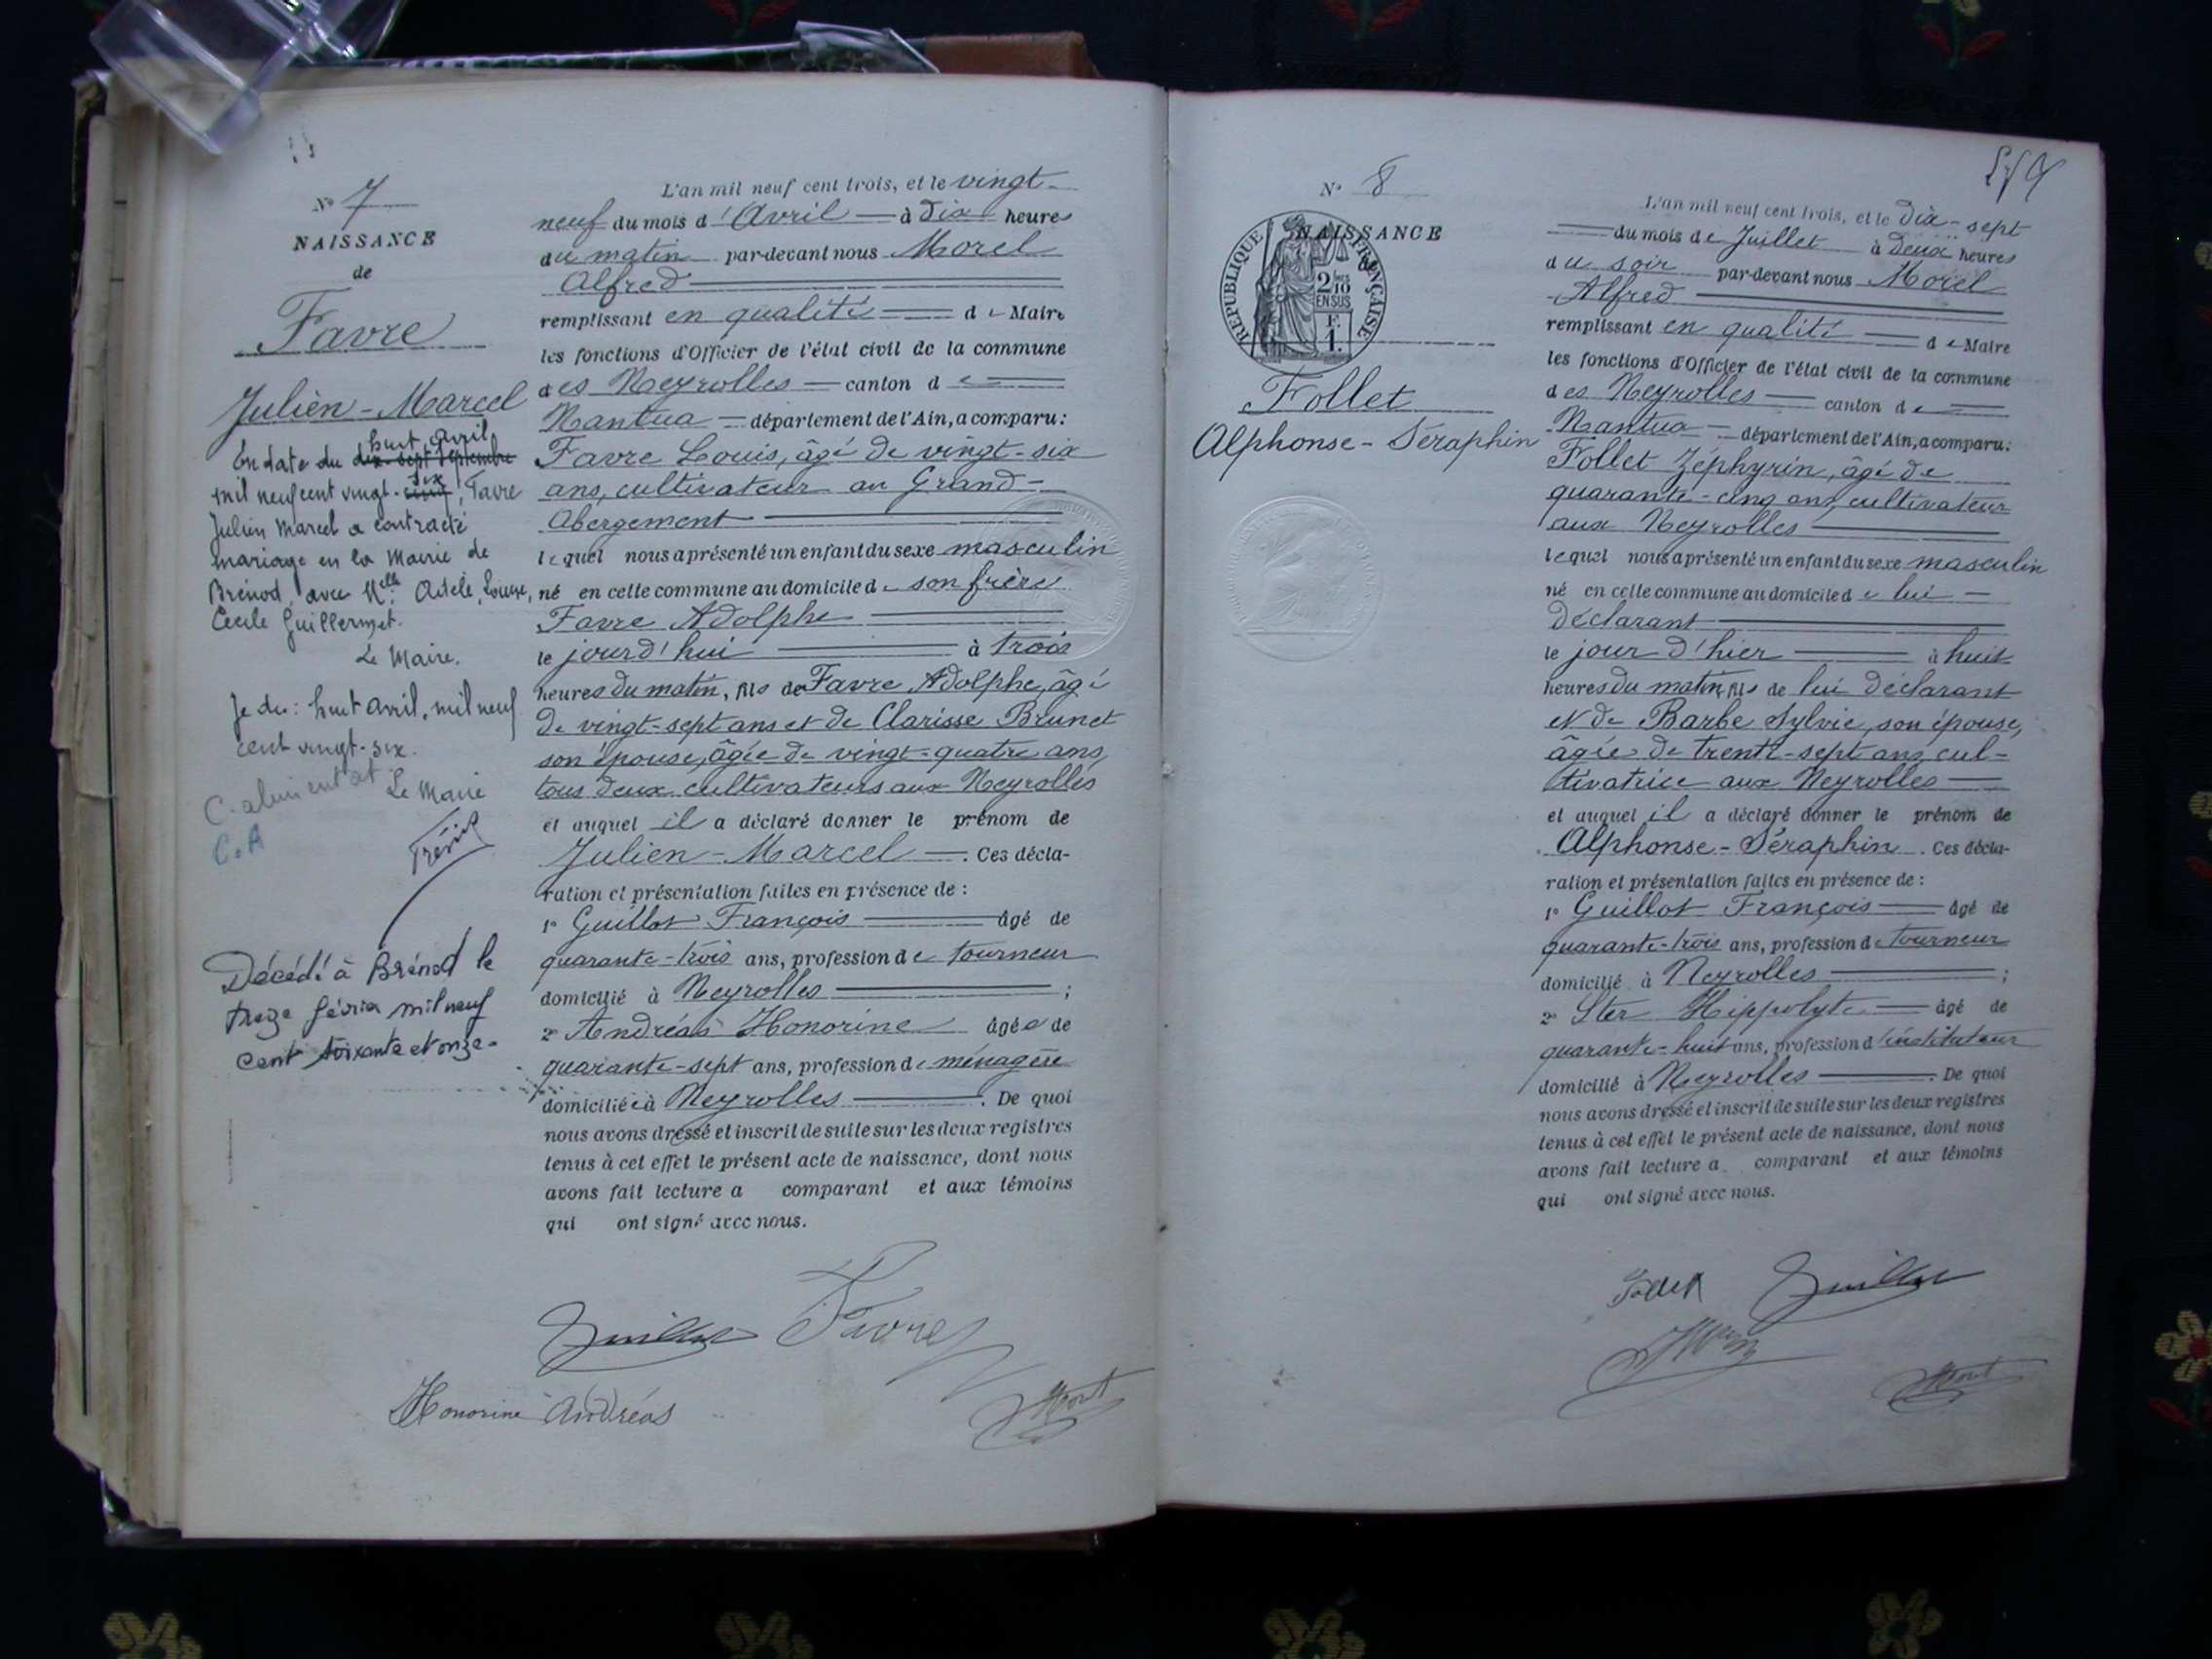 N° 7
NAISSANCE
de
Favre
Julien-Marcel
En date du huit avril
dix-sept septembre
mil neuf cent vingt-six cinq, Favre
Julien Marcel a contracté
mariage en la Mairie de
Brénod, avec Melle Adèle, Louise,
Cécile Guillermet.
Le Maire.
Je dis : huit avril, mil neuf
cent vingt-six.
Le Maire
C.A
Décédé à Brénod le
treize février mil neuf
cent soixante et onze.
L'an mil neuf cent trois, et le vingt-
neuf du mois d'Avril à dix heures
du matin par-devant nous Morel
Alfred
remplissant en qualité de Maire
les fonctions d'Officier de l'état civil de la commune
des Neyrolles canton de
Nantua département de l'Ain, a comparu :
Favre Louis, âgé de vingt-six
ans, cultivateur au Grand-
Abergement
lequel nous a présenté un enfant du sexe masculin
né en cette commune au domicile de son frère
Favre Adolphe
le jourd'hui à trois
heures du matin, fils de Favre Adolphe, âgé
de vingt-sept ans et de Clarisse Brunet
son épouse, âgée de vingt-quatre ans,
tous deux cultivateurs aux Neyrolles
et auquel il a déclaré donner le prénom de
Julien-Marcel. Ces décla-
ration et présentation faites en présence de :
1° Guillot François âgé de
quarante-trois ans, profession de tourneur
domicilié à Neyrolles ;
2° Andréas Honorine âgée de
quarante-sept ans, profession de ménagère
domiciliée à Neyrolles. De quoi
nous avons dressé et inscrit de suite sur les deux registres
tenus à cet effet le présent acte de naissance, dont nous
avons fait lecture a comparant et aux témoins
qui ont signé avec nous.
Guillot Favre
Honorine Andréas
N° 8
NAISSANCE
RÉPUBLIQUE FRANÇAISE
2/10 EN SUS
F. 1.
Follet
Alphonse-Séraphin
L'an mil neuf cent trois, et le dix-sept
du mois de Juillet à deux heures
du soir par-devant nous Morel
Alfred
remplissant en qualité de Maire
les fonctions d'Officier de l'état civil de la commune
des Neyrolles canton de
Nantua département de l'Ain, a comparu :
Follet Zéphyrin, âgé de
quarante-cinq ans, cultivateur
aux Neyrolles
lequel nous a présenté un enfant du sexe masculin
né en cette commune au domicile de lui
déclarant
le jour d'hier à huit
heures du matin, fils de lui déclarant
et de Barbe Sylvie, son épouse,
âgée de trente-sept ans, cul-
tivatrice aux Neyrolles
et auquel il a déclaré donner le prénom de
Alphonse-Séraphin. Ces décla-
ration et présentation faites en présence de :
1° Guillot François âgé de
quarante-trois ans, profession de tourneur
domicilié à Neyrolles ;
2° Ster Hippolyte âgé de
quarante-huit ans, profession d'instituteur
domicilié à Neyrolles. De quoi
nous avons dressé et inscrit de suite sur les deux registres
tenus à cet effet le présent acte de naissance, dont nous
avons fait lecture a comparant et aux témoins
qui ont signé avec nous.
Follet Guillot